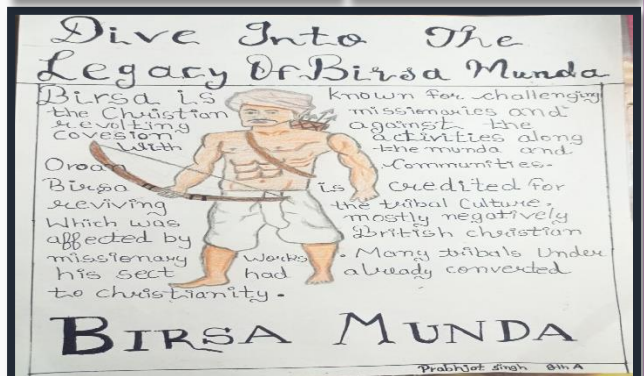 Dive Into The
Legacy Of Birsa Munda
Birsa is known for challenging
the Christian missionaries and
revolting against the
covesion activities along
With the munda and
Oroan Communities.
Birsa is credited for
reviving the tribal Culture.
Which was mostly negatively
affected by British christian
missionary works. Many tribals Under
his sect had already converted
to christianity.
BIRSA MUNDA
Prabhjot singh 8th A